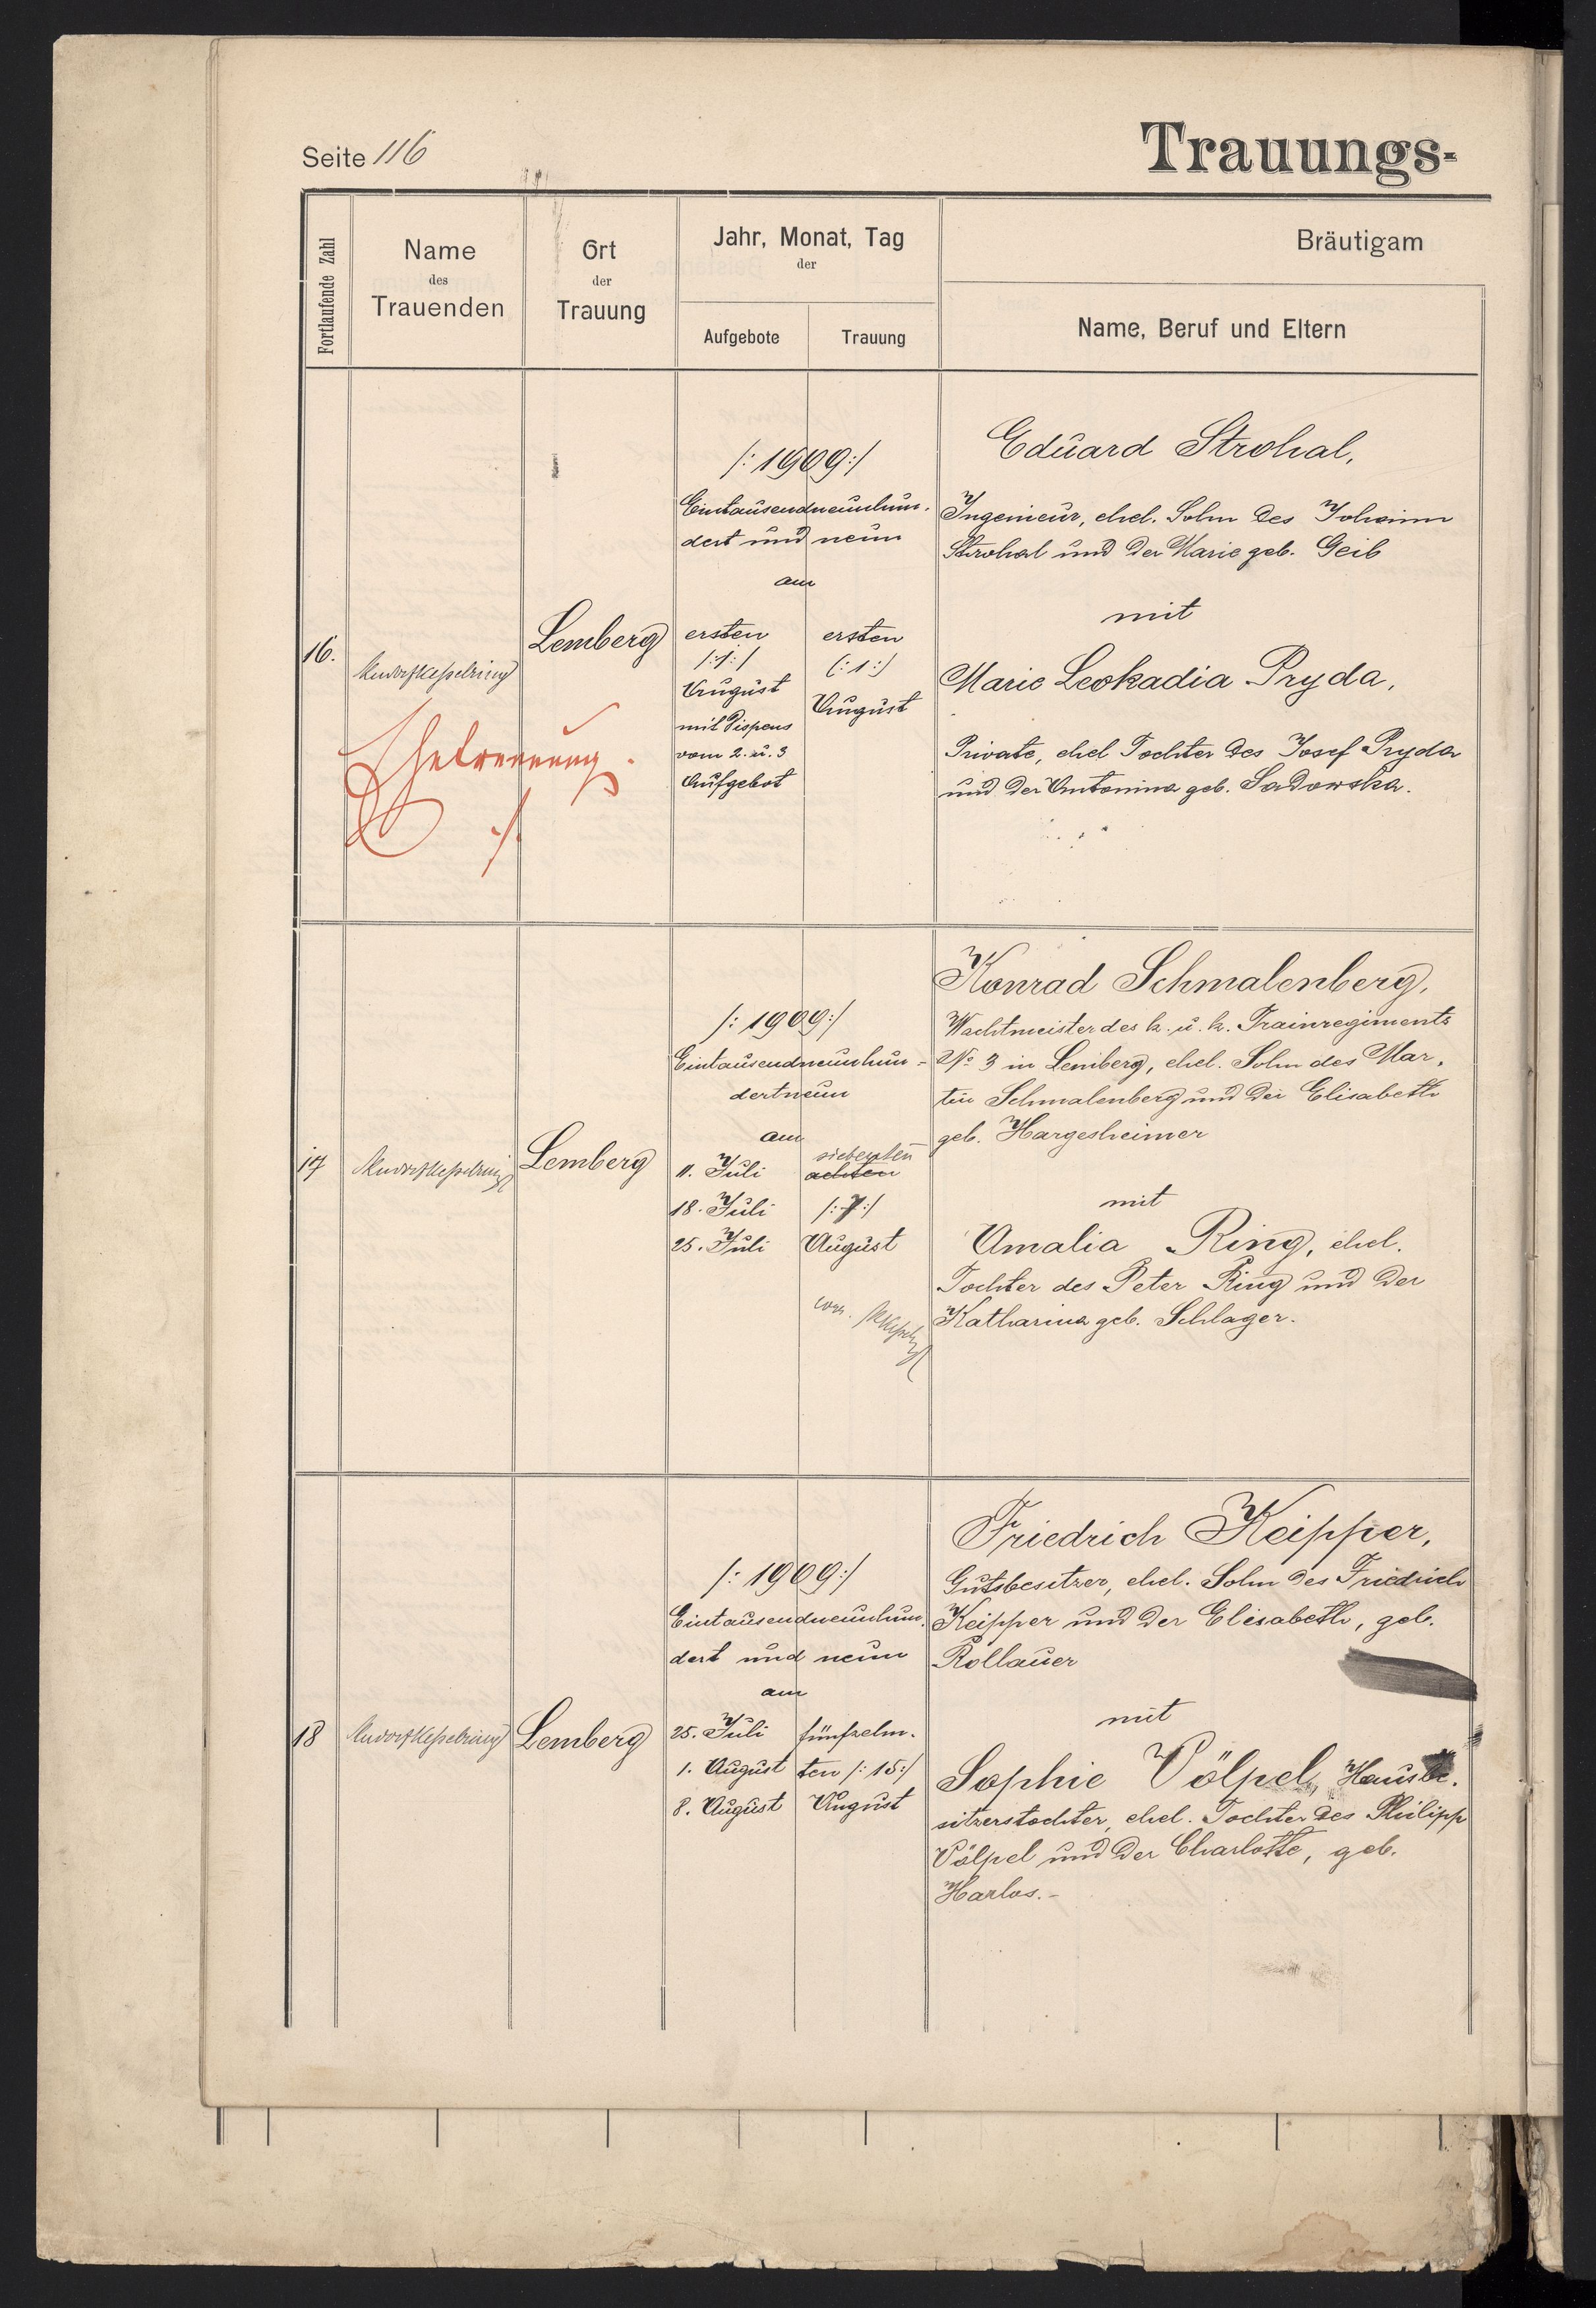 Seite 116
Trauungs-
Fortlaufende Zahl
Name
des
Trauenden
Ort
der
Trauung
Jahr, Monat, Tag
der
Aufgebote
Trauung
Bräutigam
Name, Beruf und Eltern
16.
Rudolf Kesselring
Ehetrennung.
./.
Lemberg
/: 1909 :/
Eintausendneunhun-
dert und neun
am
ersten
/: 1 :/
August
mit Dispens
vom 2. u. 3
Aufgebot
ersten
(: 1 :)
August
Eduard Strohal,
Ingenieur, ehel. Sohn des Johann
Strohal und der Marie geb. Geib
mit
Marie Leokadia Pryda,
Private, ehel Tochter des Josef Pryda
und der Antonina geb. Sadowska.
17
Rudolf Kesselring
Lemberg
/: 1909 :/
Eintausendneunhun-
dertneun
am
11. Juli
18. Juli
25. Juli
siebenten
achten
/: 7 :/
August
corr. RKesselring
Konrad Schmalenberg,
Wachtmeister des k. u. k. Trainregiments
No 3 in Lemberg, ehel. Sohn des Mar-
tin Schmalenberg und der Elisabeth
geb. Hargesheimer
mit
Amalia Ring, ehel.
Tochter des Peter Ring und der
Katharina geb. Schlager.
18
Rudolf Kesselring
Lemberg
/: 1909 :/
Eintausendneunhun-
dert und neun
am
25. Juli
1. August
8. August
fünfzehn-
ten /: 15 :/
August
Friedrich Keipper,
Gutsbesitzer, ehel. Sohn des Friedrich
Keipper und der Elisabeth, geb.
Rollauer
mit
Sophie Völpel, Hausbe-
sitzerstochter, ehel. Tochter des Philipp
Völpel und der Charlotte, geb.
Harlos.-